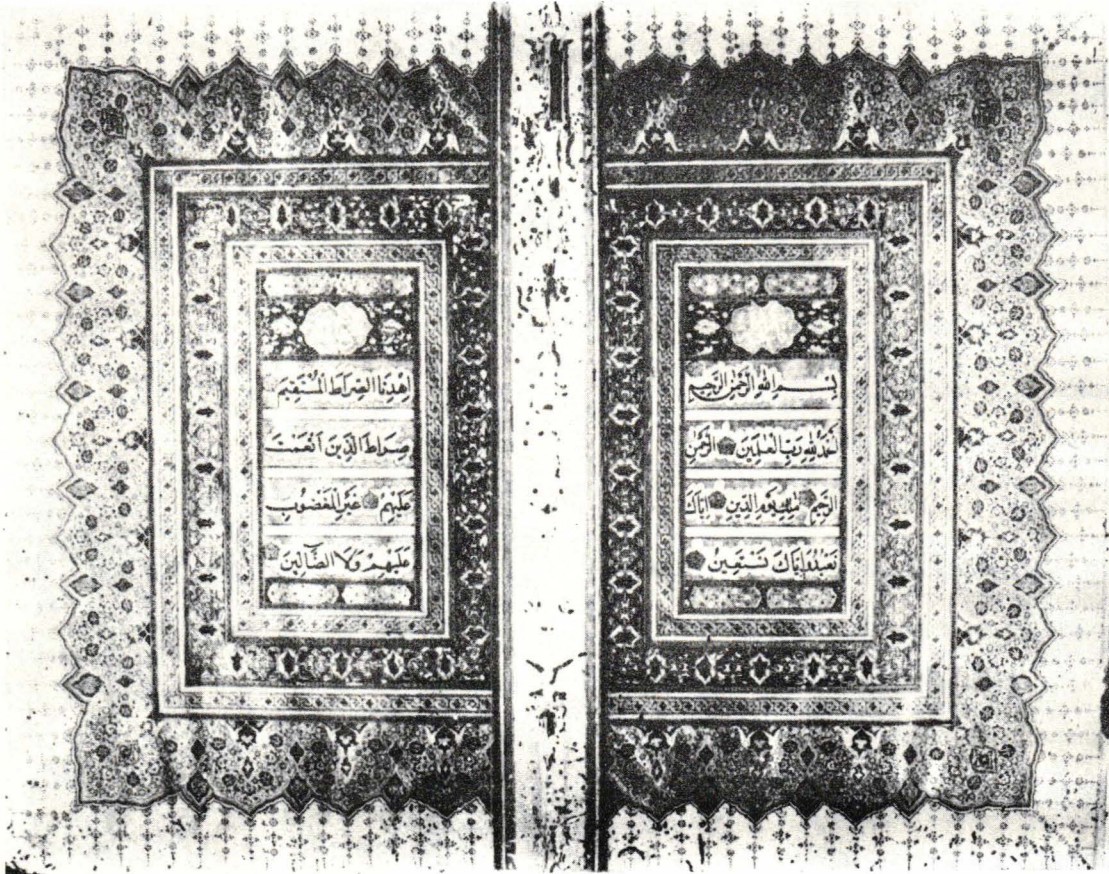 بِسْمِ اللهِ الرَّحْمٰنِ الرَّحِيمِ
اَلْحَمْدُ لِلّٰهِ رَبِّ الْعٰلَمِينَ الرَّحْمٰنِ
الرَّحِيمِ مٰلِكِ يَوْمِ الدِّينِ اِيَّاكَ
نَعْبُدُ وَاِيَّاكَ نَسْتَعِينُ
اِهْدِنَا الصِّرَاطَ الْمُسْتَقِيمَ
صِرَاطَ الَّذِينَ اَنْعَمْتَ
عَلَيْهِمْ غَيْرِ الْمَغْضُوبِ
عَلَيْهِمْ وَلَا الضَّٓالِّينَ